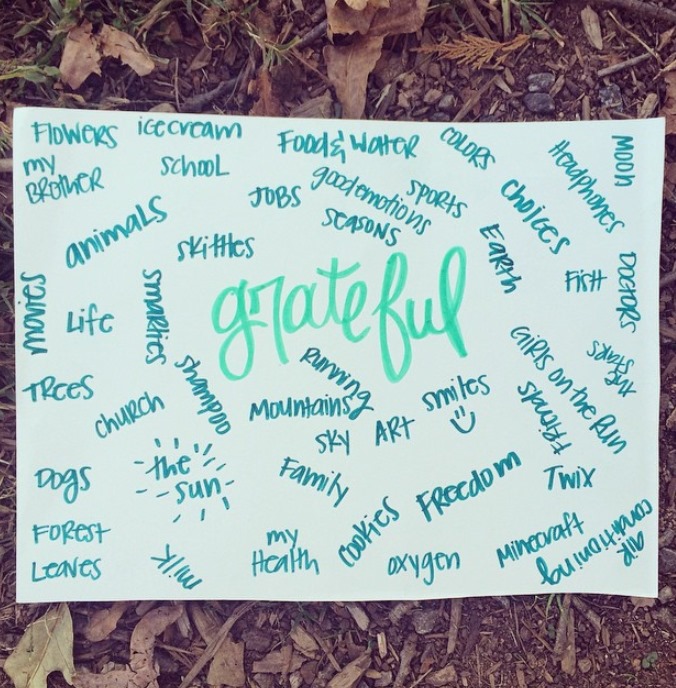 Flowers
icecream
Food & Water
COLORS
Headphones
MOON
my
BROTHER
SCHOOL
JOBS
good emotions
SPORTS
CHOICES
seasons
animals
skittles
Earth
FisH
DOCTORS
movies
Life
smarties
grateful
the stars
GIRLS on the Run
TREES
CHURCH
shampoo
Running
Mountains
smiles
SKY
ART
Friends
DOGS
the
sun
Family
Freedom
TWIX
FOREST
Leaves
milk
my
Health
cookies
oxygen
Minecraft
air
conditioning